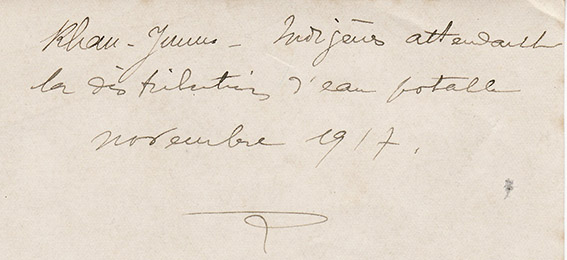 Khan-Junus - Indigènes attendant
la distribution d'eau potable
novembre 1917.